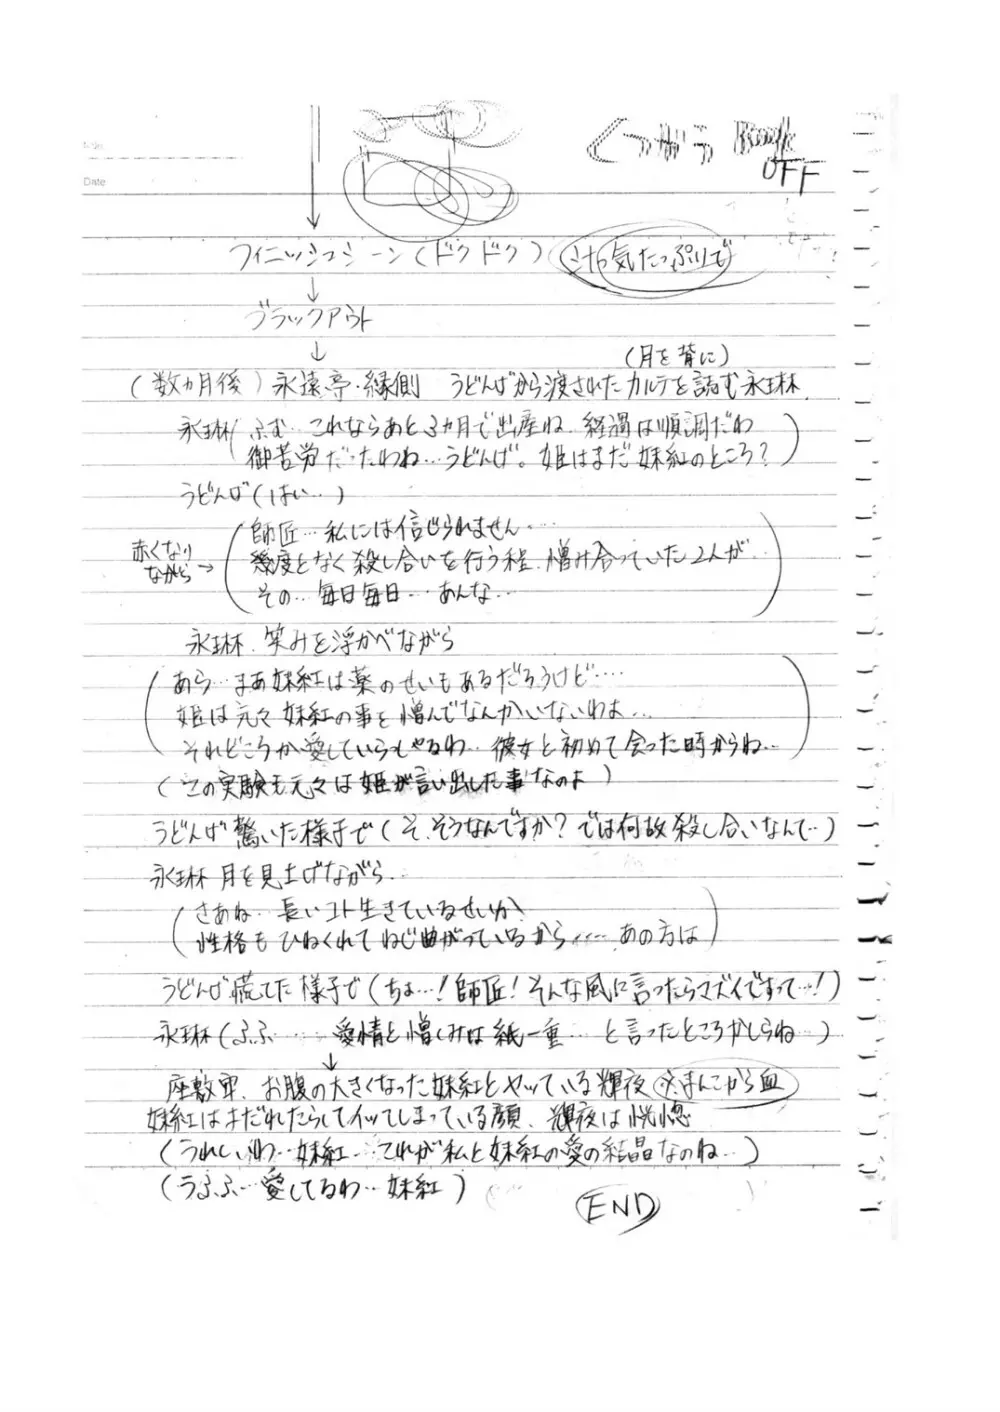 Date
くつがう Book
OFF
フィニッシュシーン(ドクドク) 汁っ気たっぷりで
↓
ブラックアウト
↓
(月を背に)
(数ヵ月後)永遠亭・縁側 うどんげから渡されたカルテを読む永琳
永琳(ふむ…これならあと3ヵ月で出産ね…経過は順調だわ
御苦労だったわね…うどんげ。姫はまだ妹紅のところ?)
うどんげ(はい…)
赤くなり
ながら→
(師匠…私には信じられません…
幾度となく殺し合いを行う程、憎み合っていた2人が、
その…毎日毎日…あんな…)
永琳、笑みを浮かべながら
(あら…まあ妹紅は薬のせいもあるだろうけど…
姫は元々妹紅の事を憎んでなんかいないわよ…
それどころか愛していらっしゃるわ…彼女と初めて会った時からね…)
(この実験も元々は姫が言い出した事なのよ)
うどんげ驚いた様子で(そ、そうなんですか?では何故殺し合いなんて…)
永琳 月を見上げながら…
(さあね…長いコト生きているせいか、
性格もひねくれてねじ曲がっているから……あの方は)
うどんげ慌てた様子で(ちょ…!師匠!そんな風に言ったらマズイですって…!)
永琳(ふふ……愛情と憎しみは紙一重…と言ったところかしらね…)
↓
座敷牢、お腹の大きくなった妹紅とヤッている輝夜 ※まんこから血
妹紅はよだれたらしてイッてしまっている顔、輝夜は恍惚
(うれしいわ…妹紅…これが私と妹紅の愛の結晶なのね…)
(うふふ…愛してるわ…妹紅)
END